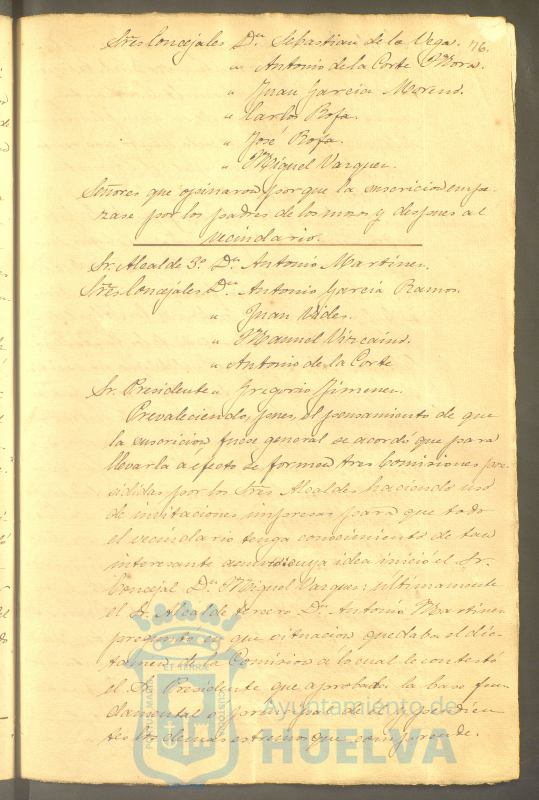 Sres Concejales Dn Sebastian de la Vega. 76.
" Antonio de la Corte Mora.
" Juan Garcia Moreno.
" Carlos Rofa.
" José Rofa.
" Miguel Vazquez.
Señores que opinaron porque la suscricion empe-
zase por los padres de los niños y despues al
vecindario.
Sr. Alcalde 3º Dn Antonio Martinez.
Sres Concejales Dn Antonio Garcia Ramos.
" Juan Vides.
" Manuel Vizcaino.
" Antonio de la Corte
Sr. Presidente " Gregorio Jimenez.
Prevaleciendo, pues, el pensamiento de que
la suscricion fuese general se acordó que para
llevarla á efecto se formen tres Comisiones pre-
sididas por los Sres Alcaldes haciendo uso
de invitaciones impresas para que todo
el vecindario tenga conocimiento de tan
interesante cuya idea inició el Sr.
Concejal Dn Miguel Vazquez: últimamente
el Sr. Alcalde tercero Dn Antonio Martinez
preguntó en que situacion quedaba el dic-
tamen de la Comision á lo cual le contestó
el Sr. Presidente que aprobada la base fun-
damental
los demas estremos que comprende.
PORTUS MARIS ET TERRAE CUSTODIA
Ayuntamiento de
HUELVA